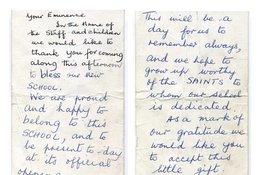 Your Eminence
In the Name of
the Staff and children
we would like to
thank you for coming
along this afternoon
to bless our new
SCHOOL.
We are proud
and happy to
belong to this
SCHOOL, and to
be present to-day
at its official
opening
This will be a
day for us to
remember always,
and we hope to
grow up worthy
of the SAINTS to
whom our school
is dedicated.
As a mark of
our gratitude we
would like you
to accept this
little gift.